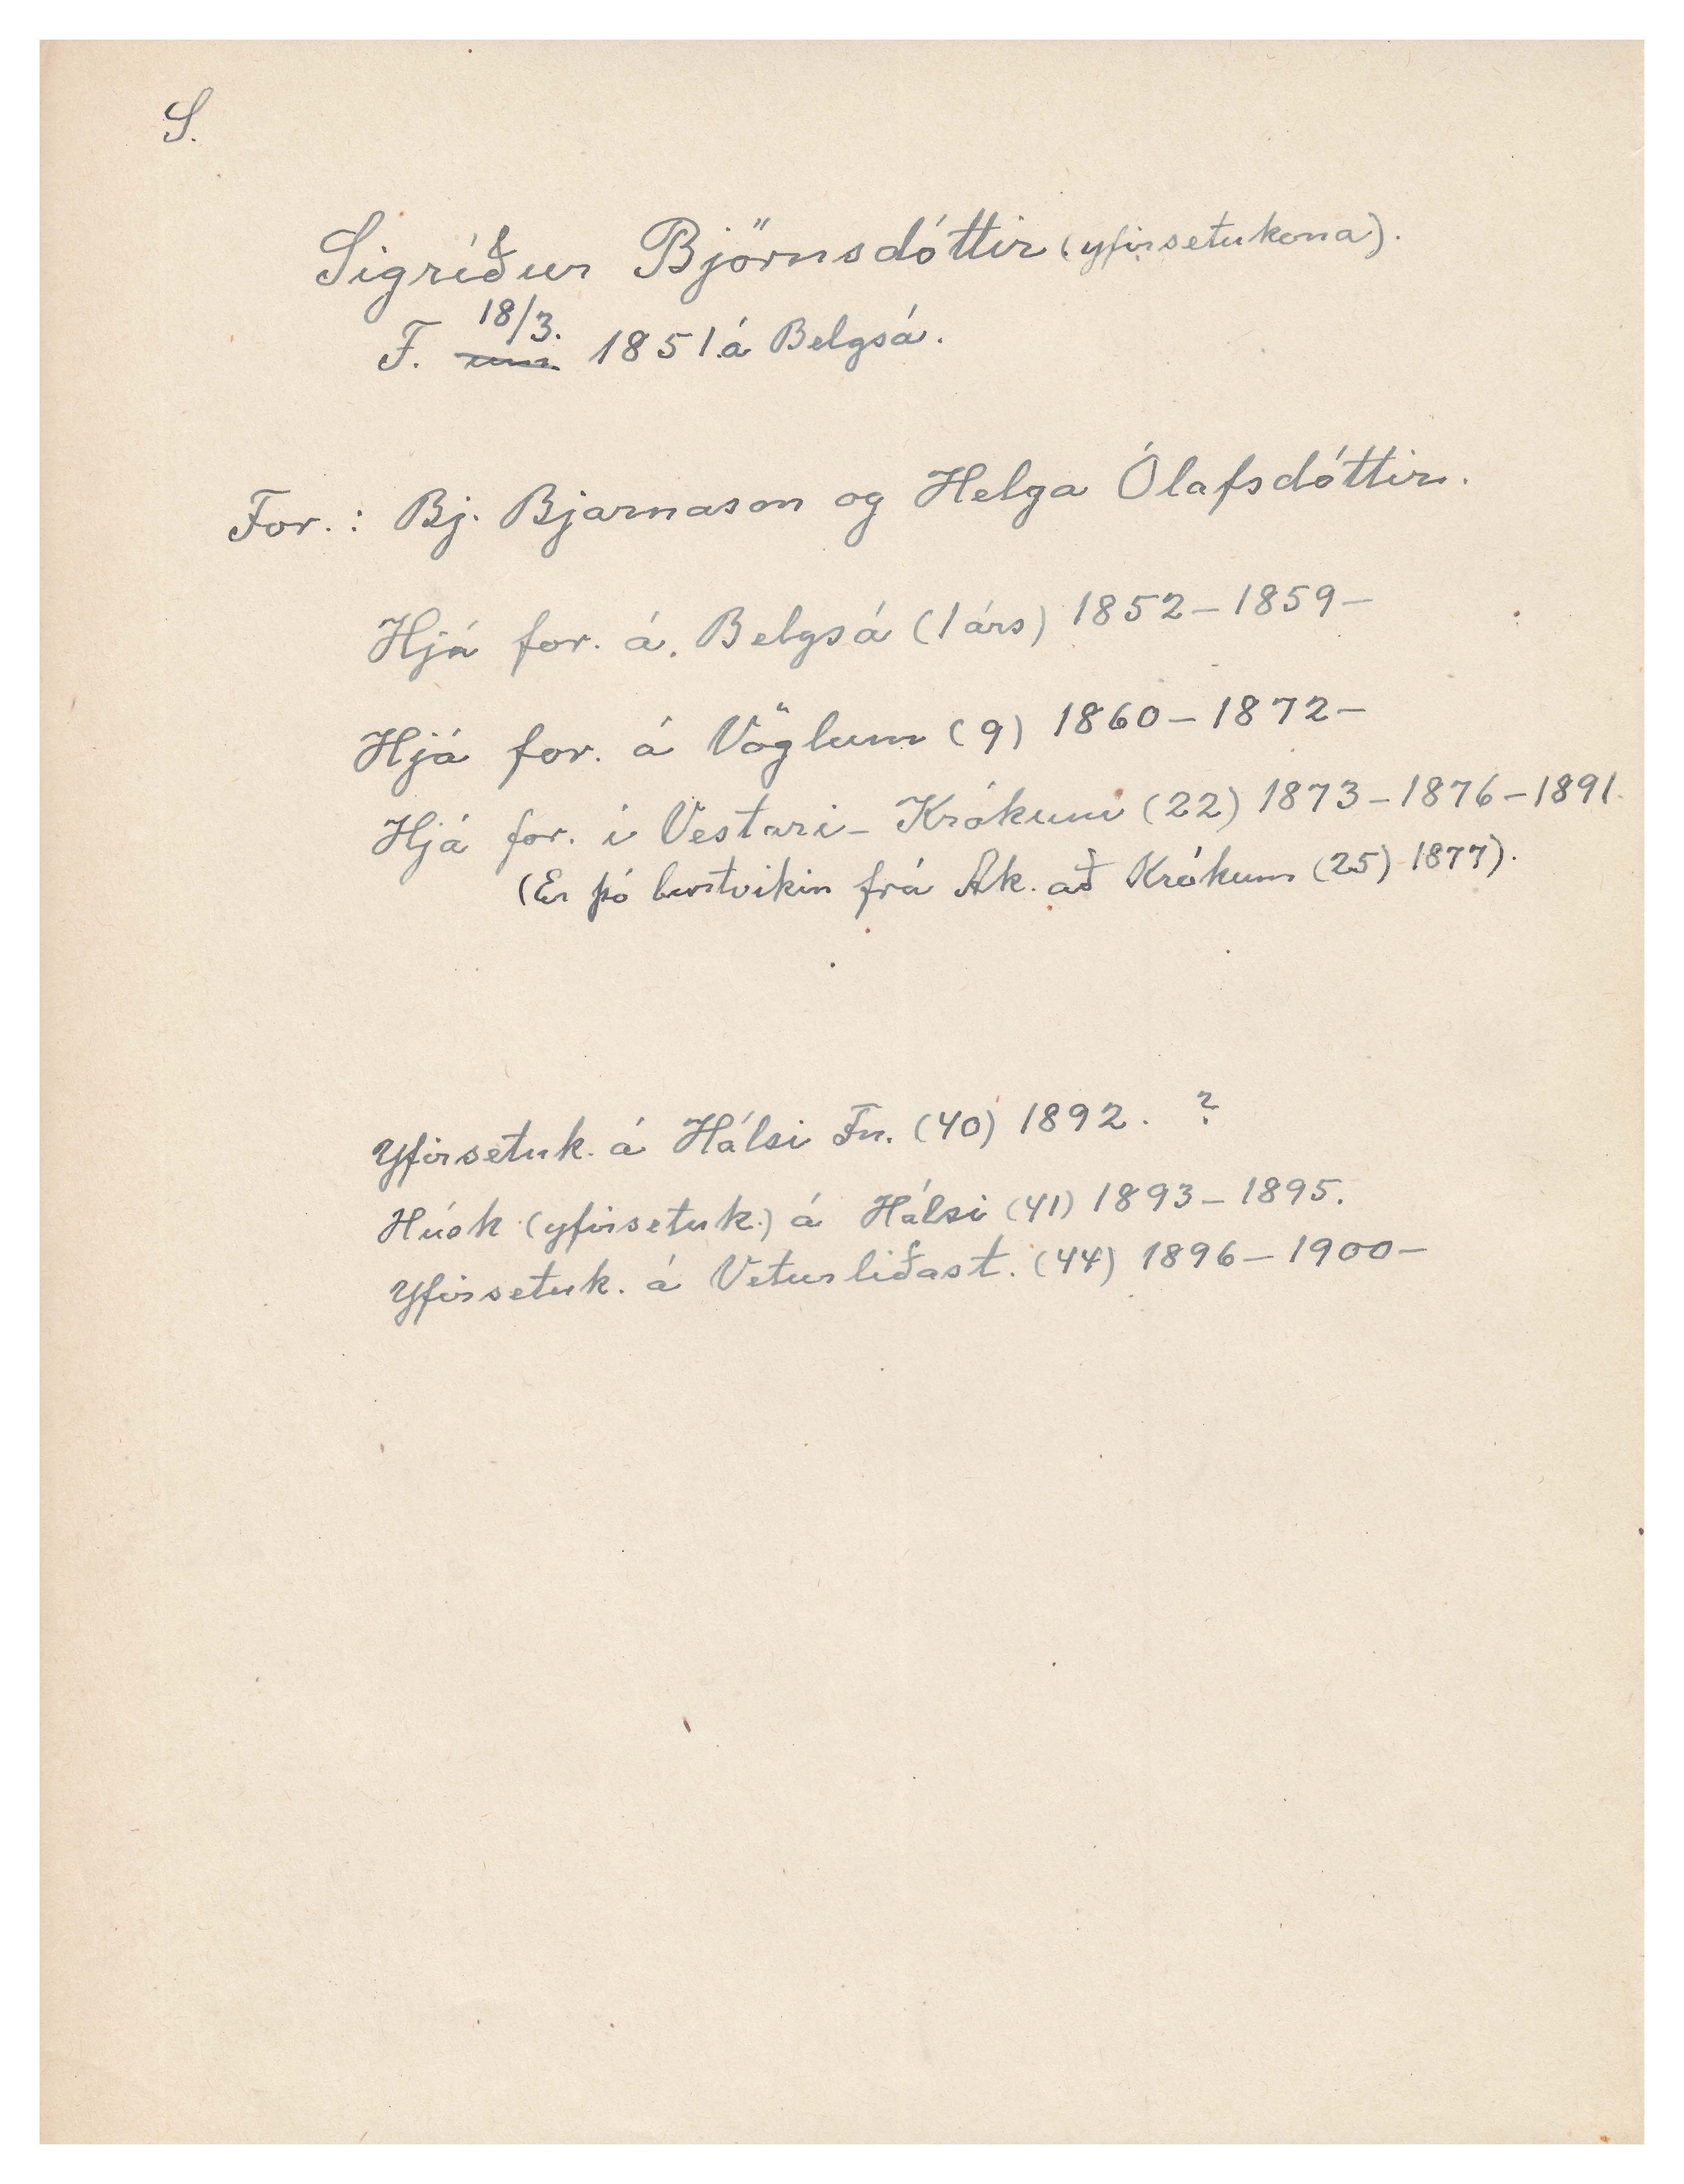 S.
Sigríður Björnsdóttir (yfirsetukona).
18/3.
F. um 1851 á Belgsá.
For.: Bj. Bjarnason og Helga Ólafsdóttir.
Hjá for. á Belgsá (1 árs) 1852–1859–
Hjá for. á Vöglum (9) 1860–1872–
Hjá for. í Vestari-Krókum (22) 1873–1876–1891.
(Er þó burtvikin frá Ak. að Krókum (25) 1877).
Yfirsetuk. á Hálsi Fn. (40) 1892. ?
Húsk (yfirsetuk.) á Hálsi (41) 1893–1895.
Yfirsetuk. á Veturliðast. (44) 1896–1900–